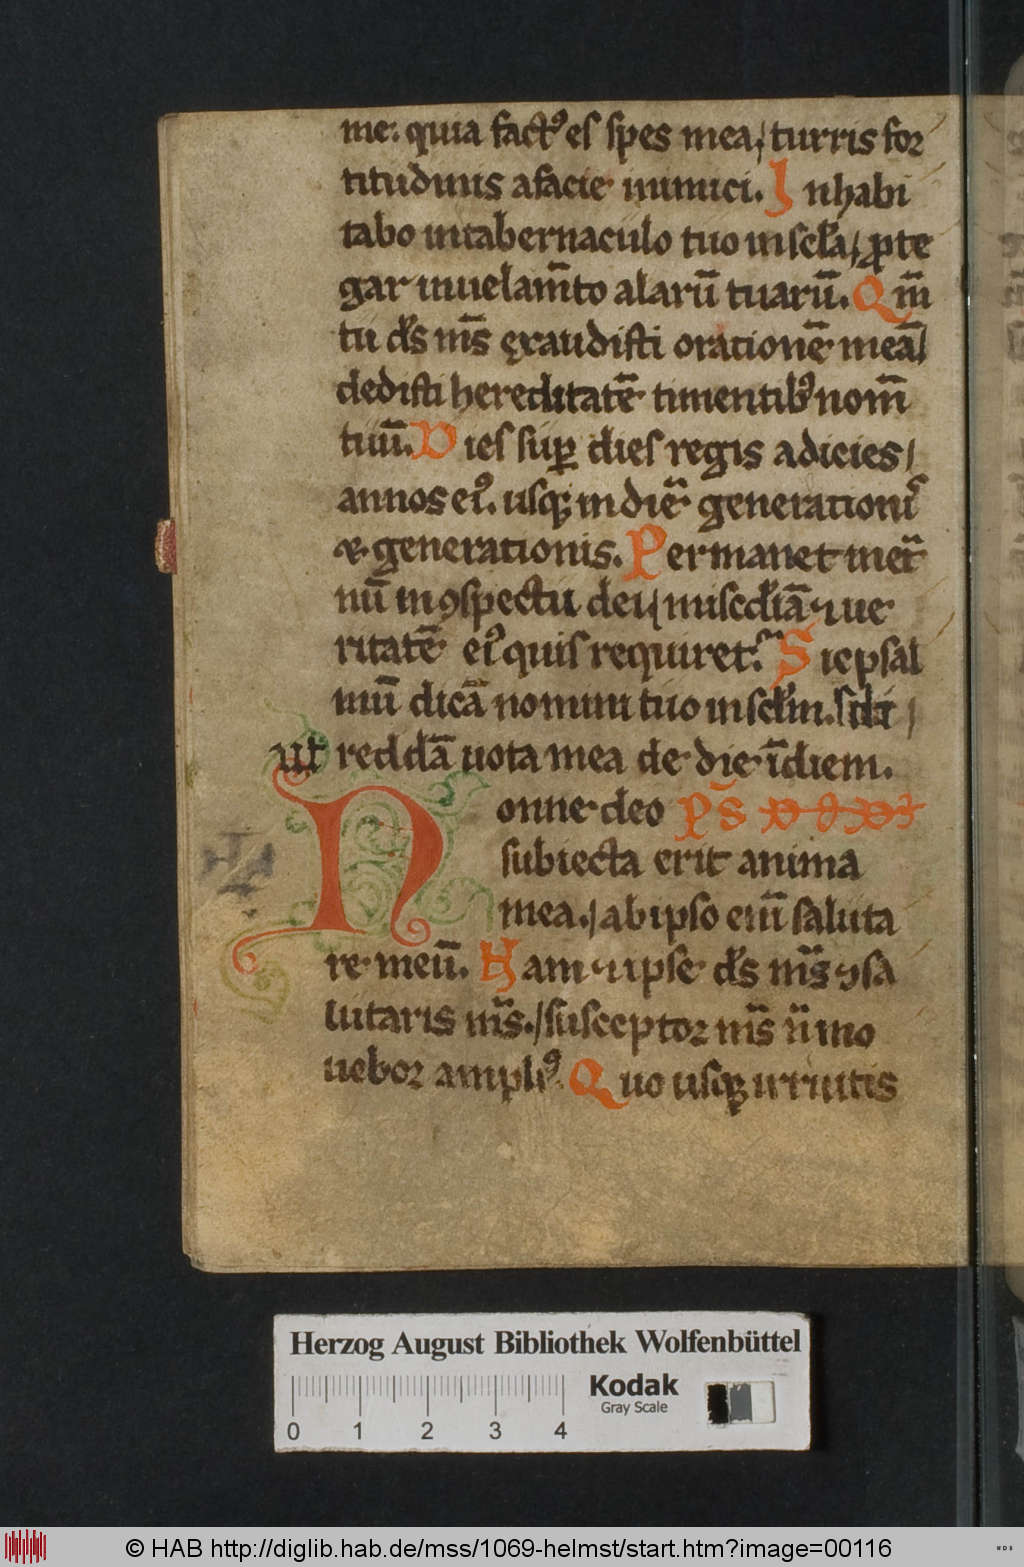 me. quia fact᷒ es spes mea / turris for
titudinis afacie inimici. Inhabi
tabo intabernaculo tuo inscl̄a / ꝓte
gar inuelam̄to alarū tuarū. Qm̄
tu ds̄ ms̄ exaudisti orationē meā /
dedisti hereditatē timentib᷒ nom̄
tuū. Dies suꝑ dies regis adicies /
annos ei᷒. usq; in diē generationis
⁊ generationis. Permanet inet
nū in ꝯspectu dei / misc̄diā ⁊ ue
ritatē ei᷒ quis requiret. Sic psal
mū dicā nomini tuo inscl̄m. scl̄i /
ut reddā uota mea de die īdiem.
Nonne deo PS
subiecta erit anima
mea. / ab ipso enī saluta
re meū. Nam ⁊ ipse ds̄ ms̄ ⁊ sa
lutaris ms̄. / susceptor ms̄ n̄ mo
uebor ampli᷒. Quo usq; irruitis
Herzog August Bibliothek Wolfenbüttel
Kodak
Gray Scale
0 1 2 3 4
© HAB http://diglib.hab.de/mss/1069-helmst/start.htm?image=00116